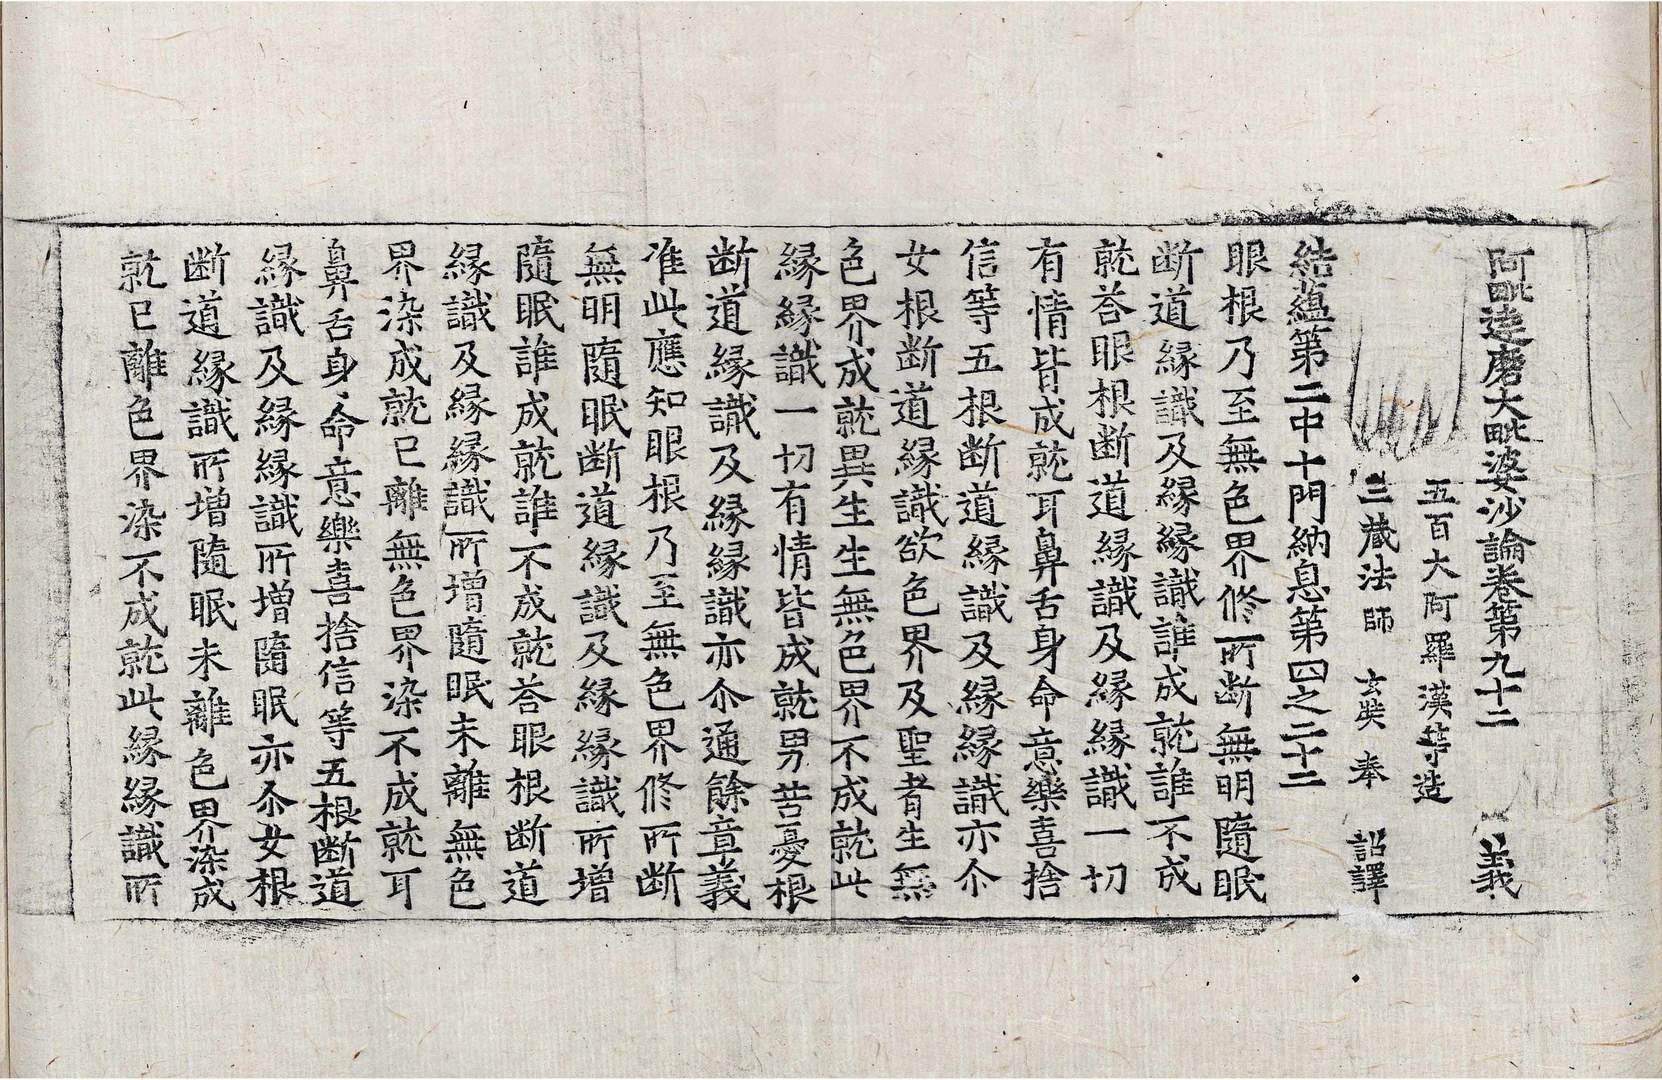 阿毗達磨大毗婆沙論卷第九十二 義
五百大阿羅漢等造
三藏法師 玄奘 奉 詔譯
結蘊第二中十門納息第四之二十二
眼根乃至無色界修所斷無明隨眠
断道緣識及緣緣識誰成就誰不成
就荅眼根断道緣識及緣緣識一切
有情皆成就耳鼻舌身命意樂喜捨
信等五根断道緣識及緣緣識亦尒
女根断道緣識欲色界及聖者生無
色界成就異生生無色界不成就此
緣緣識一切有情皆成就男苦憂根
断道緣識及緣緣識亦尒通餘章義
准此應知眼根乃至無色界修所断
無明隨眠断道緣識及緣緣識所增
隨眠誰成就誰不成就荅眼根断道
緣識及緣緣識所增隨眠未離無色
界染成就已離無色界染不成就耳
鼻舌身命意樂喜捨信等五根断道
緣識及緣緣識所增隨眠亦尒女根
断道緣識所增隨眠未離色界染成
就已離色界染不成就此緣緣識所